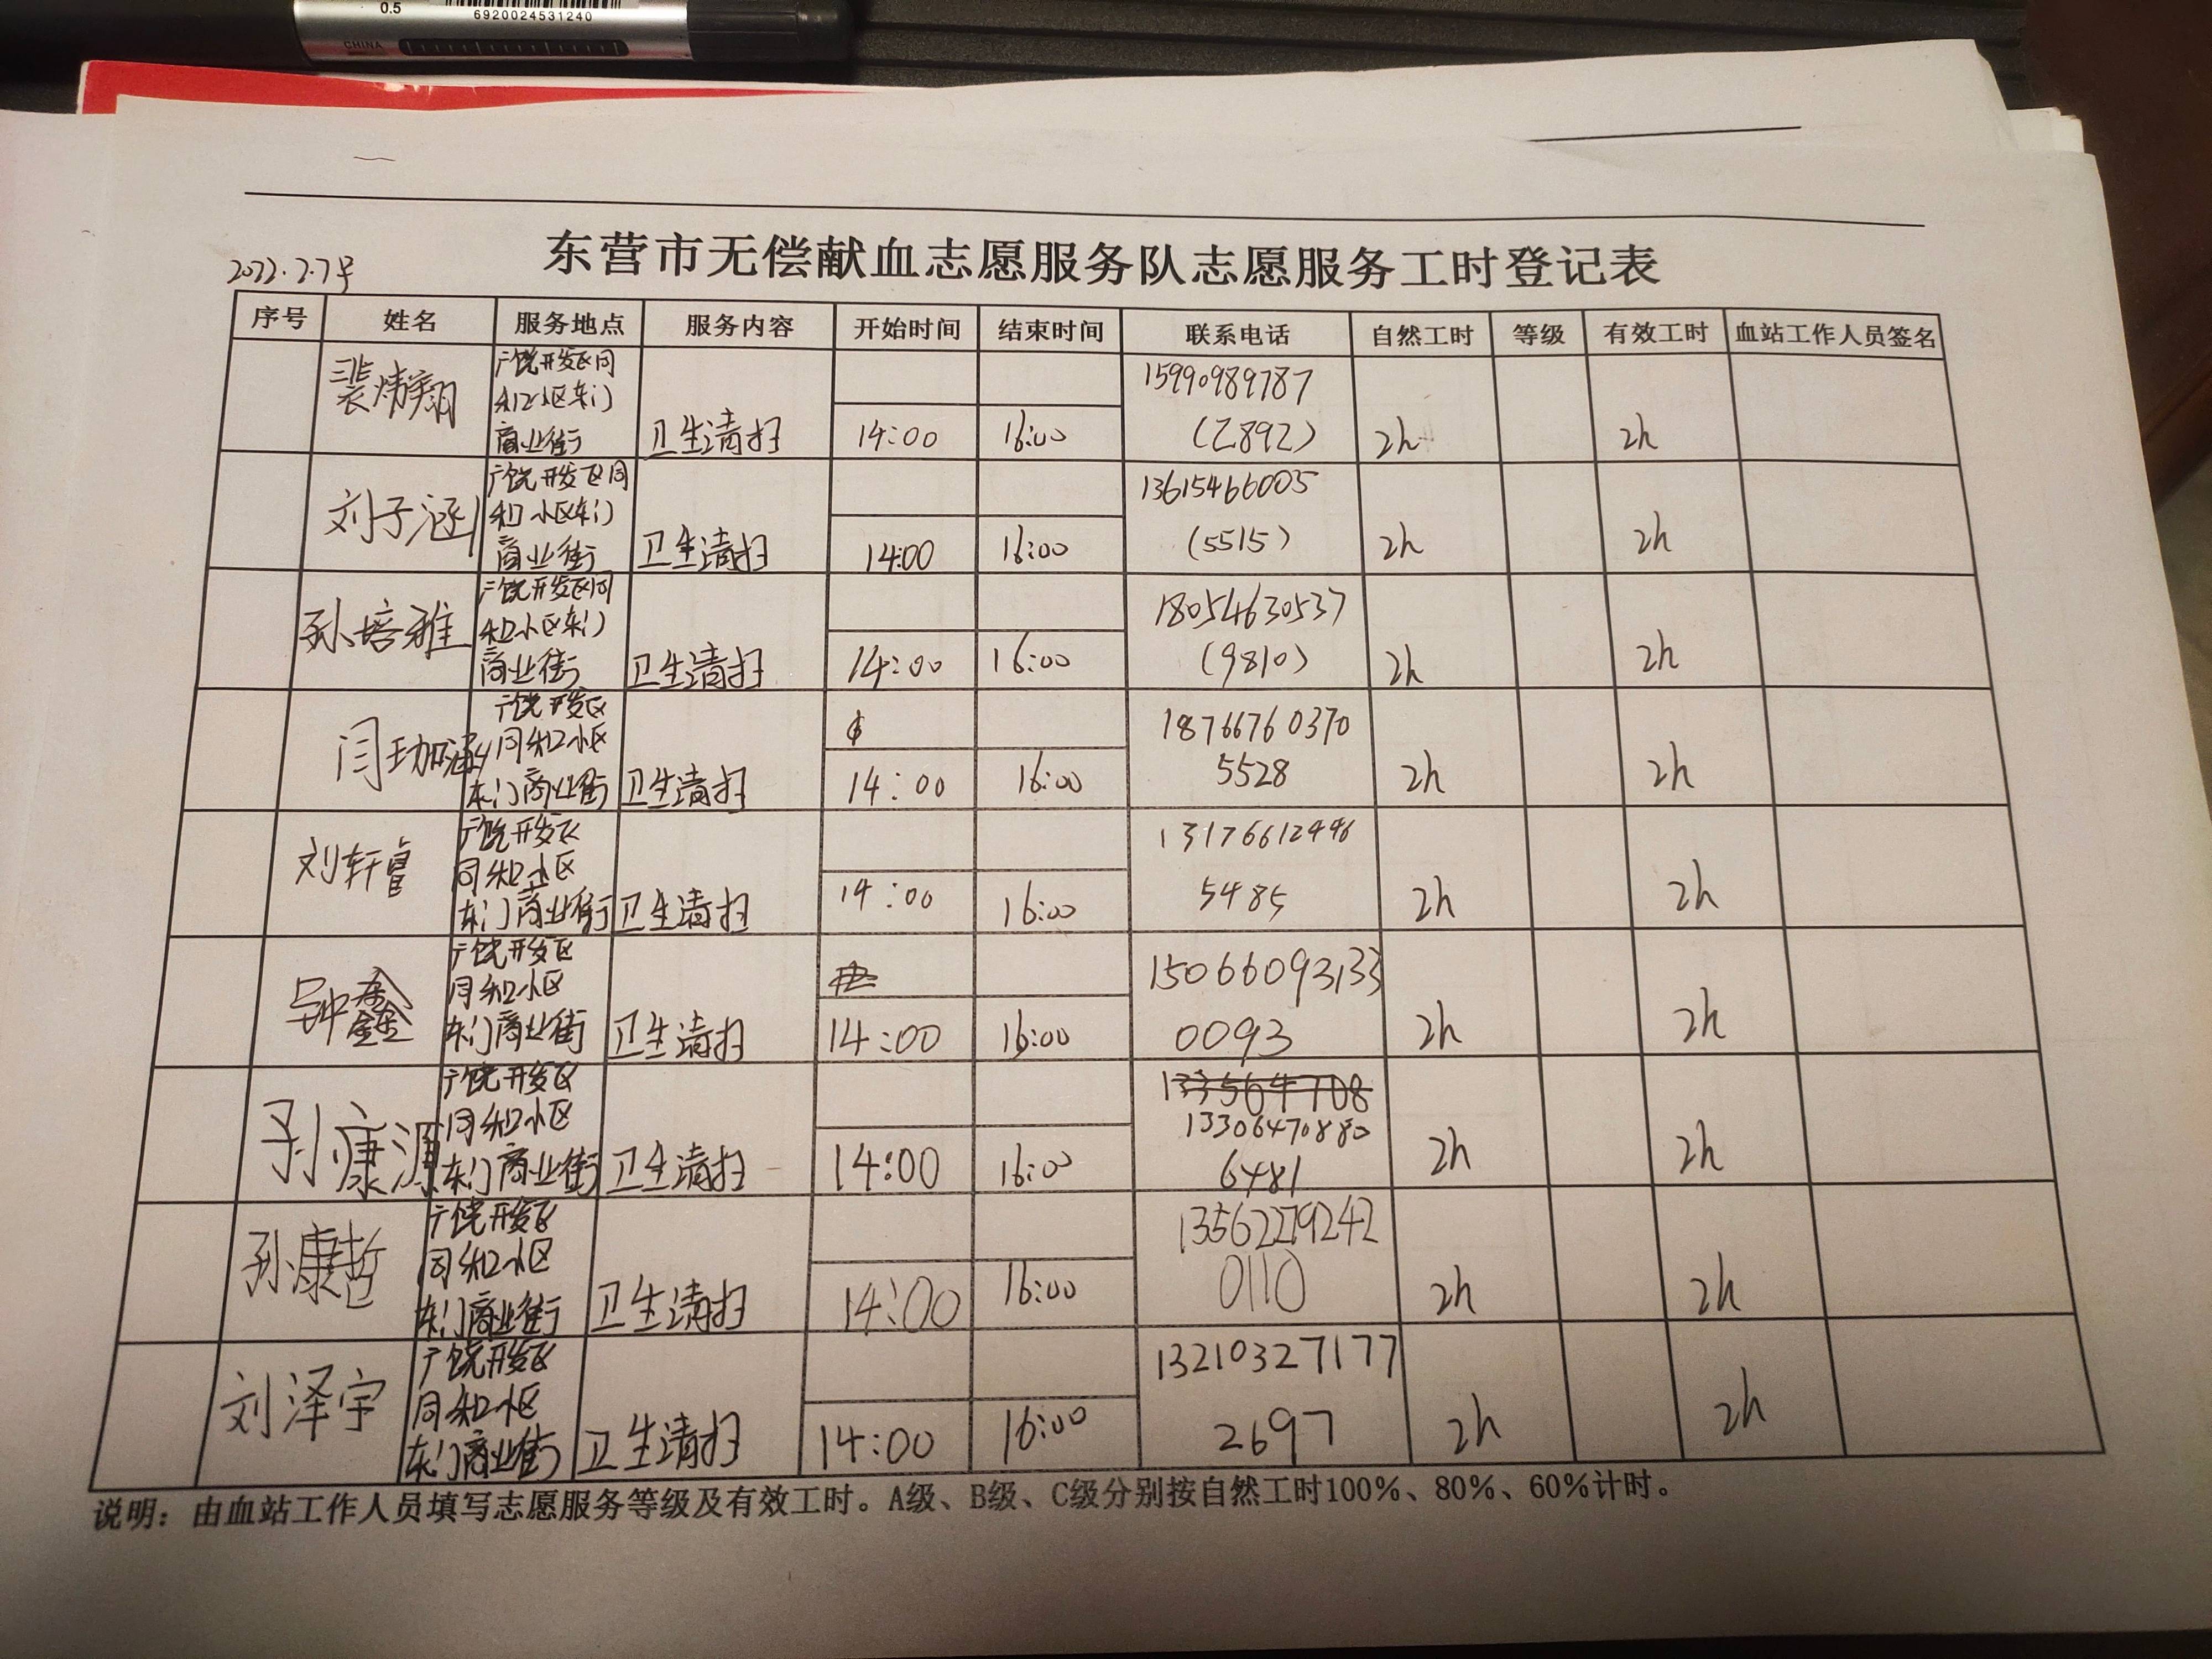 0.5
6920024531240
CHINA
东营市无偿献血志愿服务队志愿服务工时登记表
2022.2.7号
序号 姓名 服务地点 服务内容 开始时间 结束时间 联系电话 自然工时 等级 有效工时 血站工作人员签名
裴炜翔 广饶开发区同和小区东门商业街 卫生清扫 14:00 16:00 15990989787 (2892) 2h 2h
刘子涵 广饶开发区同和小区东门商业街 卫生清扫 14:00 16:00 13615466005 (5515) 2h 2h
孙培雅 广饶开发区同和小区东门商业街 卫生清扫 14:00 16:00 18054630537 (9810) 2h 2h
闫珈涵 广饶开发区同和小区东门商业街 卫生清扫 14:00 16:00 18766760370 5528 2h 2h
刘轩睿 广饶开发区同和小区东门商业街 卫生清扫 14:00 16:00 13176612496 5485 2h 2h
钟鑫 广饶开发区同和小区东门商业街 卫生清扫 14:00 16:00 15066093133 0093 2h 2h
孙康源 广饶开发区同和小区东门商业街 卫生清扫 14:00 16:00 13306470880 6481 2h 2h
孙康哲 广饶开发区同和小区东门商业街 卫生清扫 14:00 16:00 13562279242 0110 2h 2h
刘泽宇 广饶开发区同和小区东门商业街 卫生清扫 14:00 16:00 13210327177 2697 2h 2h
说明：由血站工作人员填写志愿服务等级及有效工时。A级、B级、C级分别按自然工时100%、80%、60%计时。